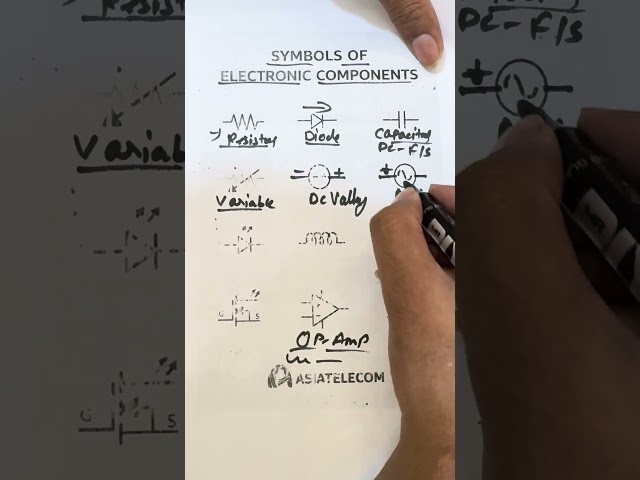 SYMBOLS OF
ELECTRONIC COMPONENTS
Resistor Diode Capacitor
PC-F/s
Variable DC Valley
G S
OP-Amp
ASIATELECOM